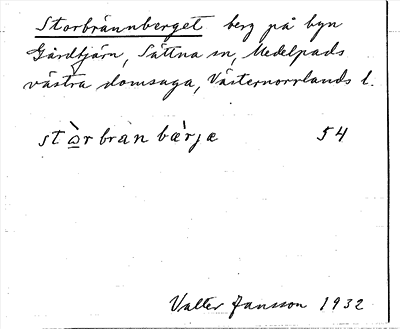 Storbrännberget berg på byn
Gårdtjärn, Sättna sn, Medelpads
västra domsaga, Västernorrlands l.
stò̲rbranbæ̀rjæ 54
Valter Jansson 1932